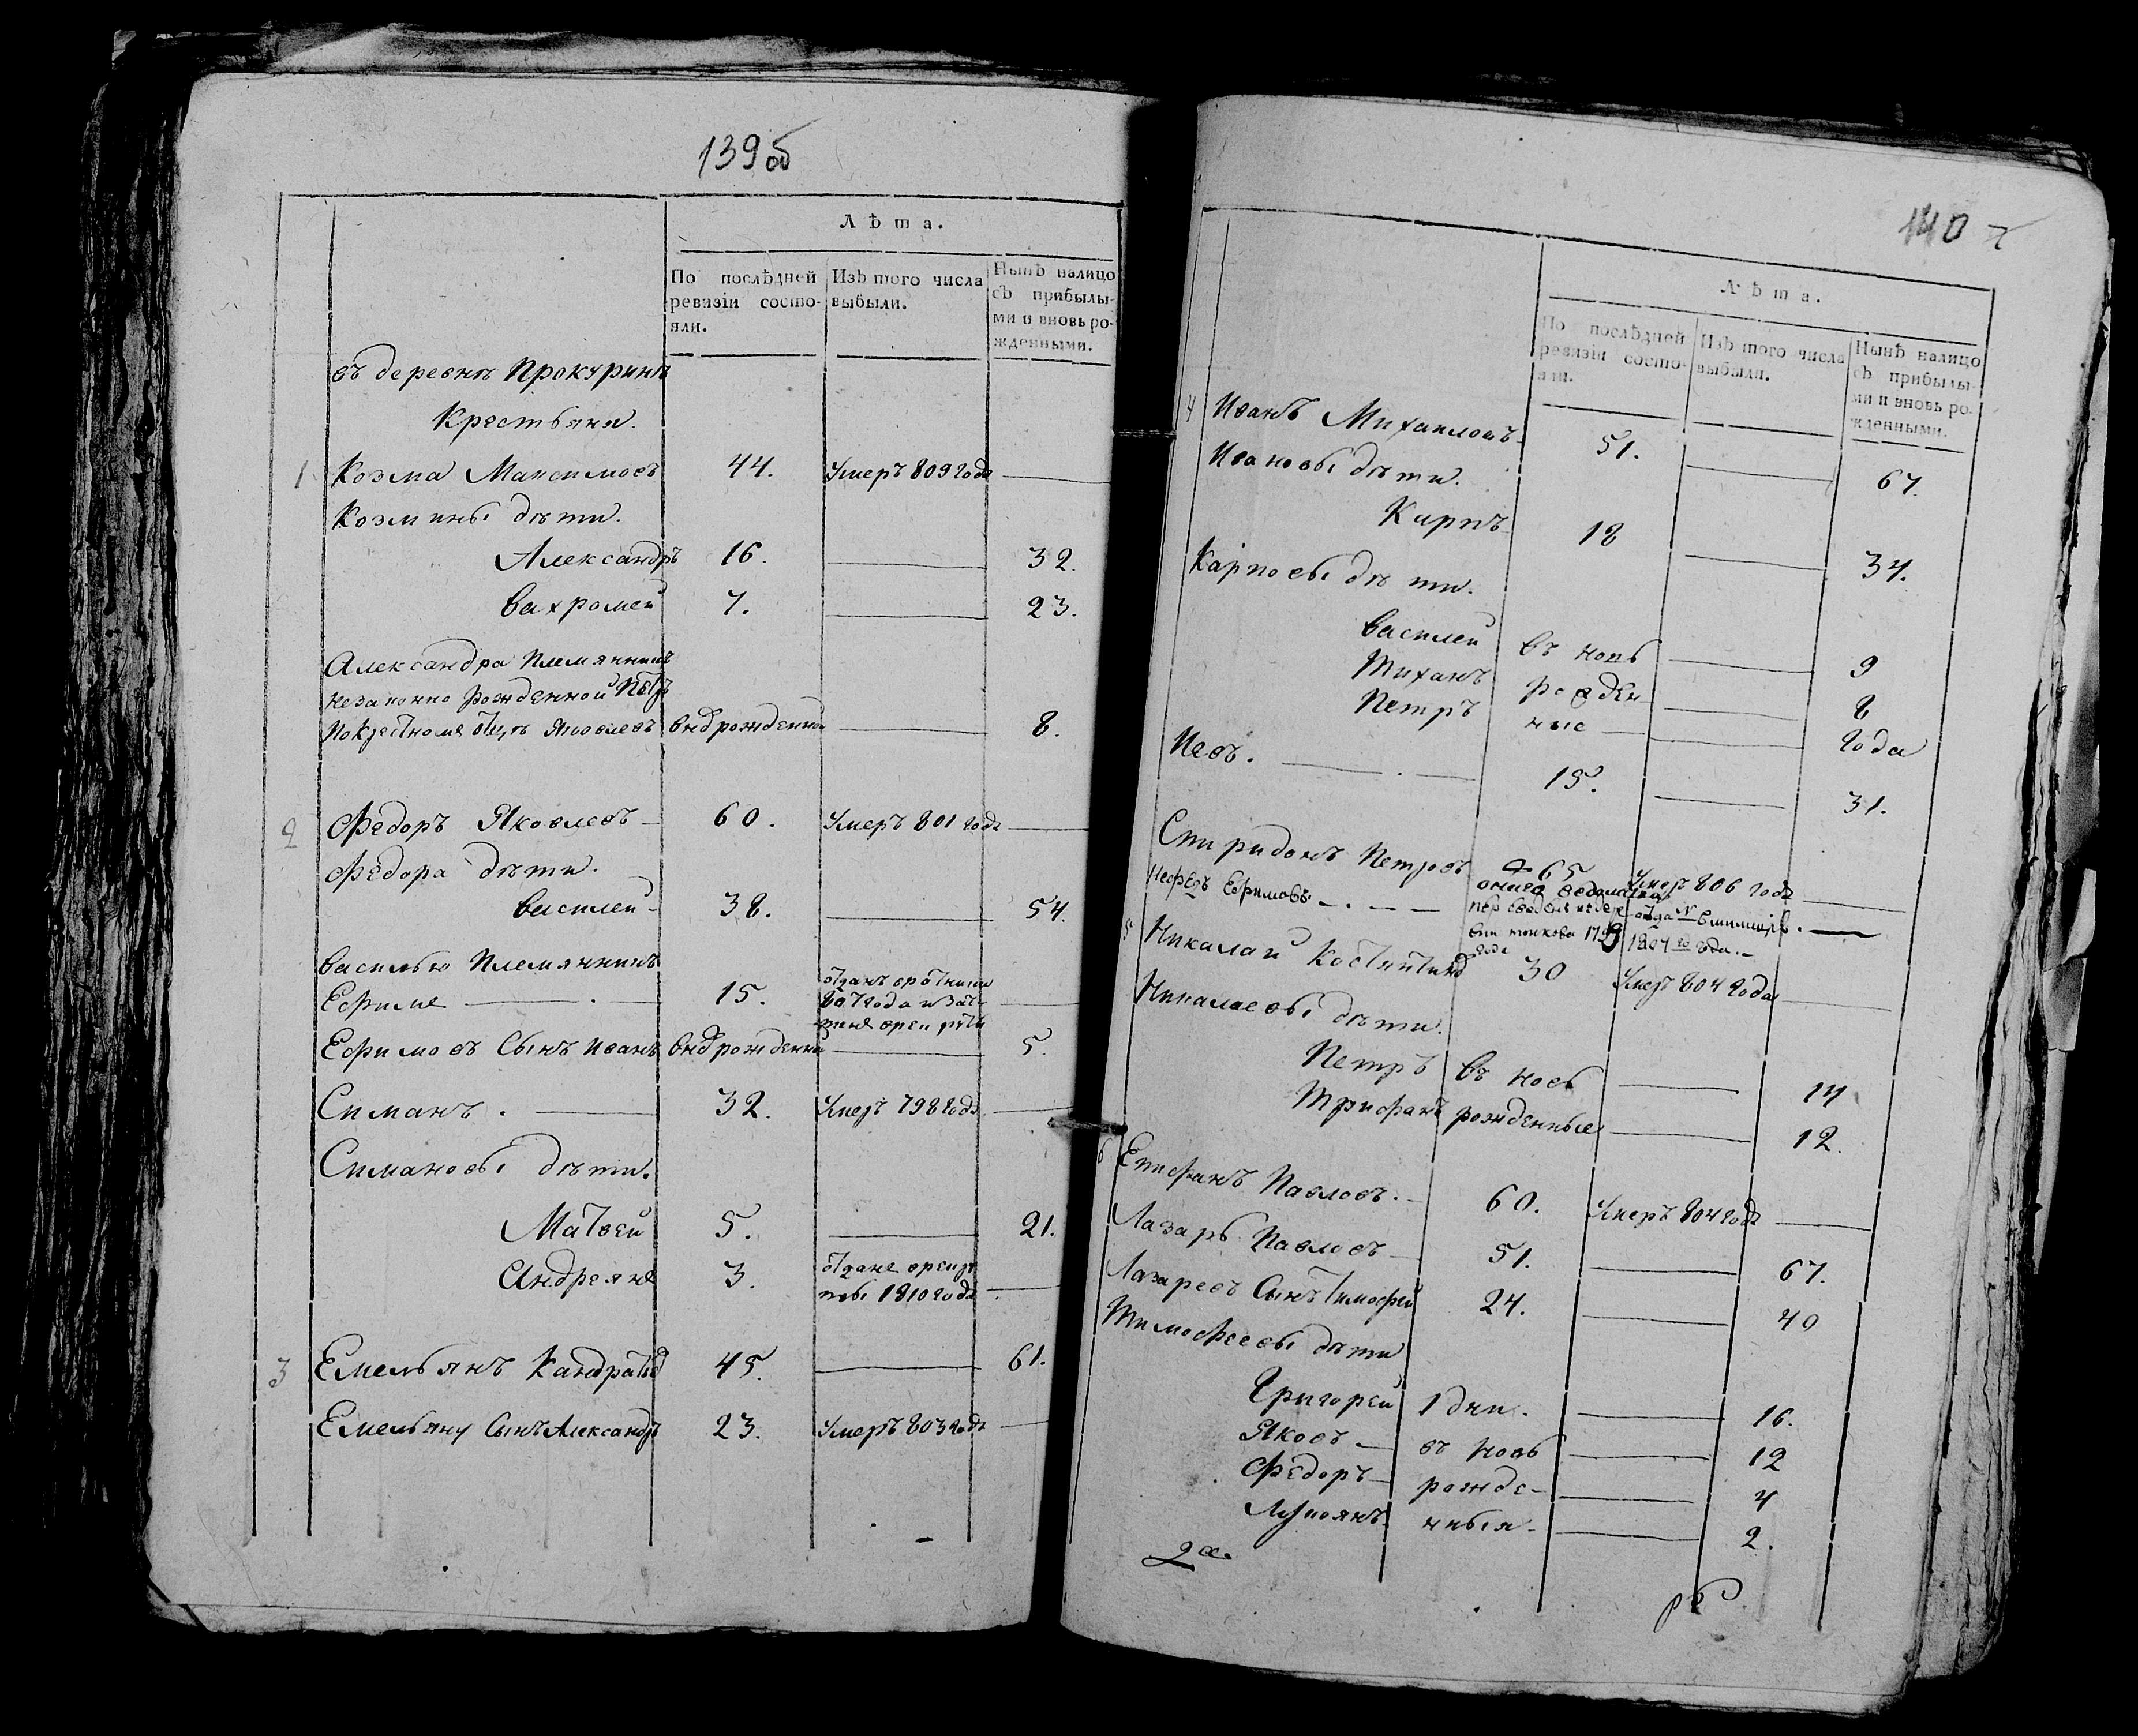 139об
Лѣта.
По послѣдней ревизіи состо-
яли.
Изъ того числа выбыли.
Нынѣ налицо
съ прибылы-
ми и вновь ро-
жденными.
въ деревнѣ Прокуринѣ
Крестьяни.
1 Козма Максимовъ 44. Умеръ 809 года
Козмины дѣти.
Александръ 16. 32.
Вахромей 7. 23.
Александра племянникъ
незаконно рожденной Петръ
по крестноме отцѣ Яковлевъ внов рожденной 8.
2 Федоръ Яковлевъ 60. Умеръ 801 года
Федора дѣти.
Василей 38. 54.
Василью племянникъ
Ефиме 15. отданъ
807 года
Ефимовъ сынъ Иванъ внов рожденной 5.
Симанъ. 32. Умеръ 798 года
Симановы дѣти.
Матвей 5. 21.
Андреяне 3. отдане врекру
ты 1810 года
3 Емельянъ Кандратьев 45. 61.
Емельяну сынъ Александръ 23. Умеръ 803 года
140
Лѣта.
По послѣдней
ревизіи состо-
яли.
Изъ того числа
выбыли.
Нынѣ налицо
съ прибылы-
ми и вновь ро-
жденными.
4 Иванъ Михаиловъ 51. 67.
Ивановы дѣти.
Карпъ 18 34.
Карповы дѣти.
Василей въ новь 9
Тиханъ рожден 8
Петръ ные года
Иевъ. 15. 31.
Спиридонъ Петровъ 65 Умеръ 806 года
Нефедъ Ефимовъ.
1799
года
1804 го года.
5 Николай Костентинов 30 Умеръ 804 года
Николаевы дѣти.
Петръ въ новь 14
Трифанъ рожденные 12.
6 Епифанъ Павловъ. 60. Умеръ 804 года
Лазарь Павловъ 51. 67.
Лазаревъ сынъ Тимофей 24. 40
Тимофеевы дѣти
Григорей 1 дни. 16.
Яковъ въ новь 12
Федоръ рожде- 4
Лукоянъ нныя. 2.